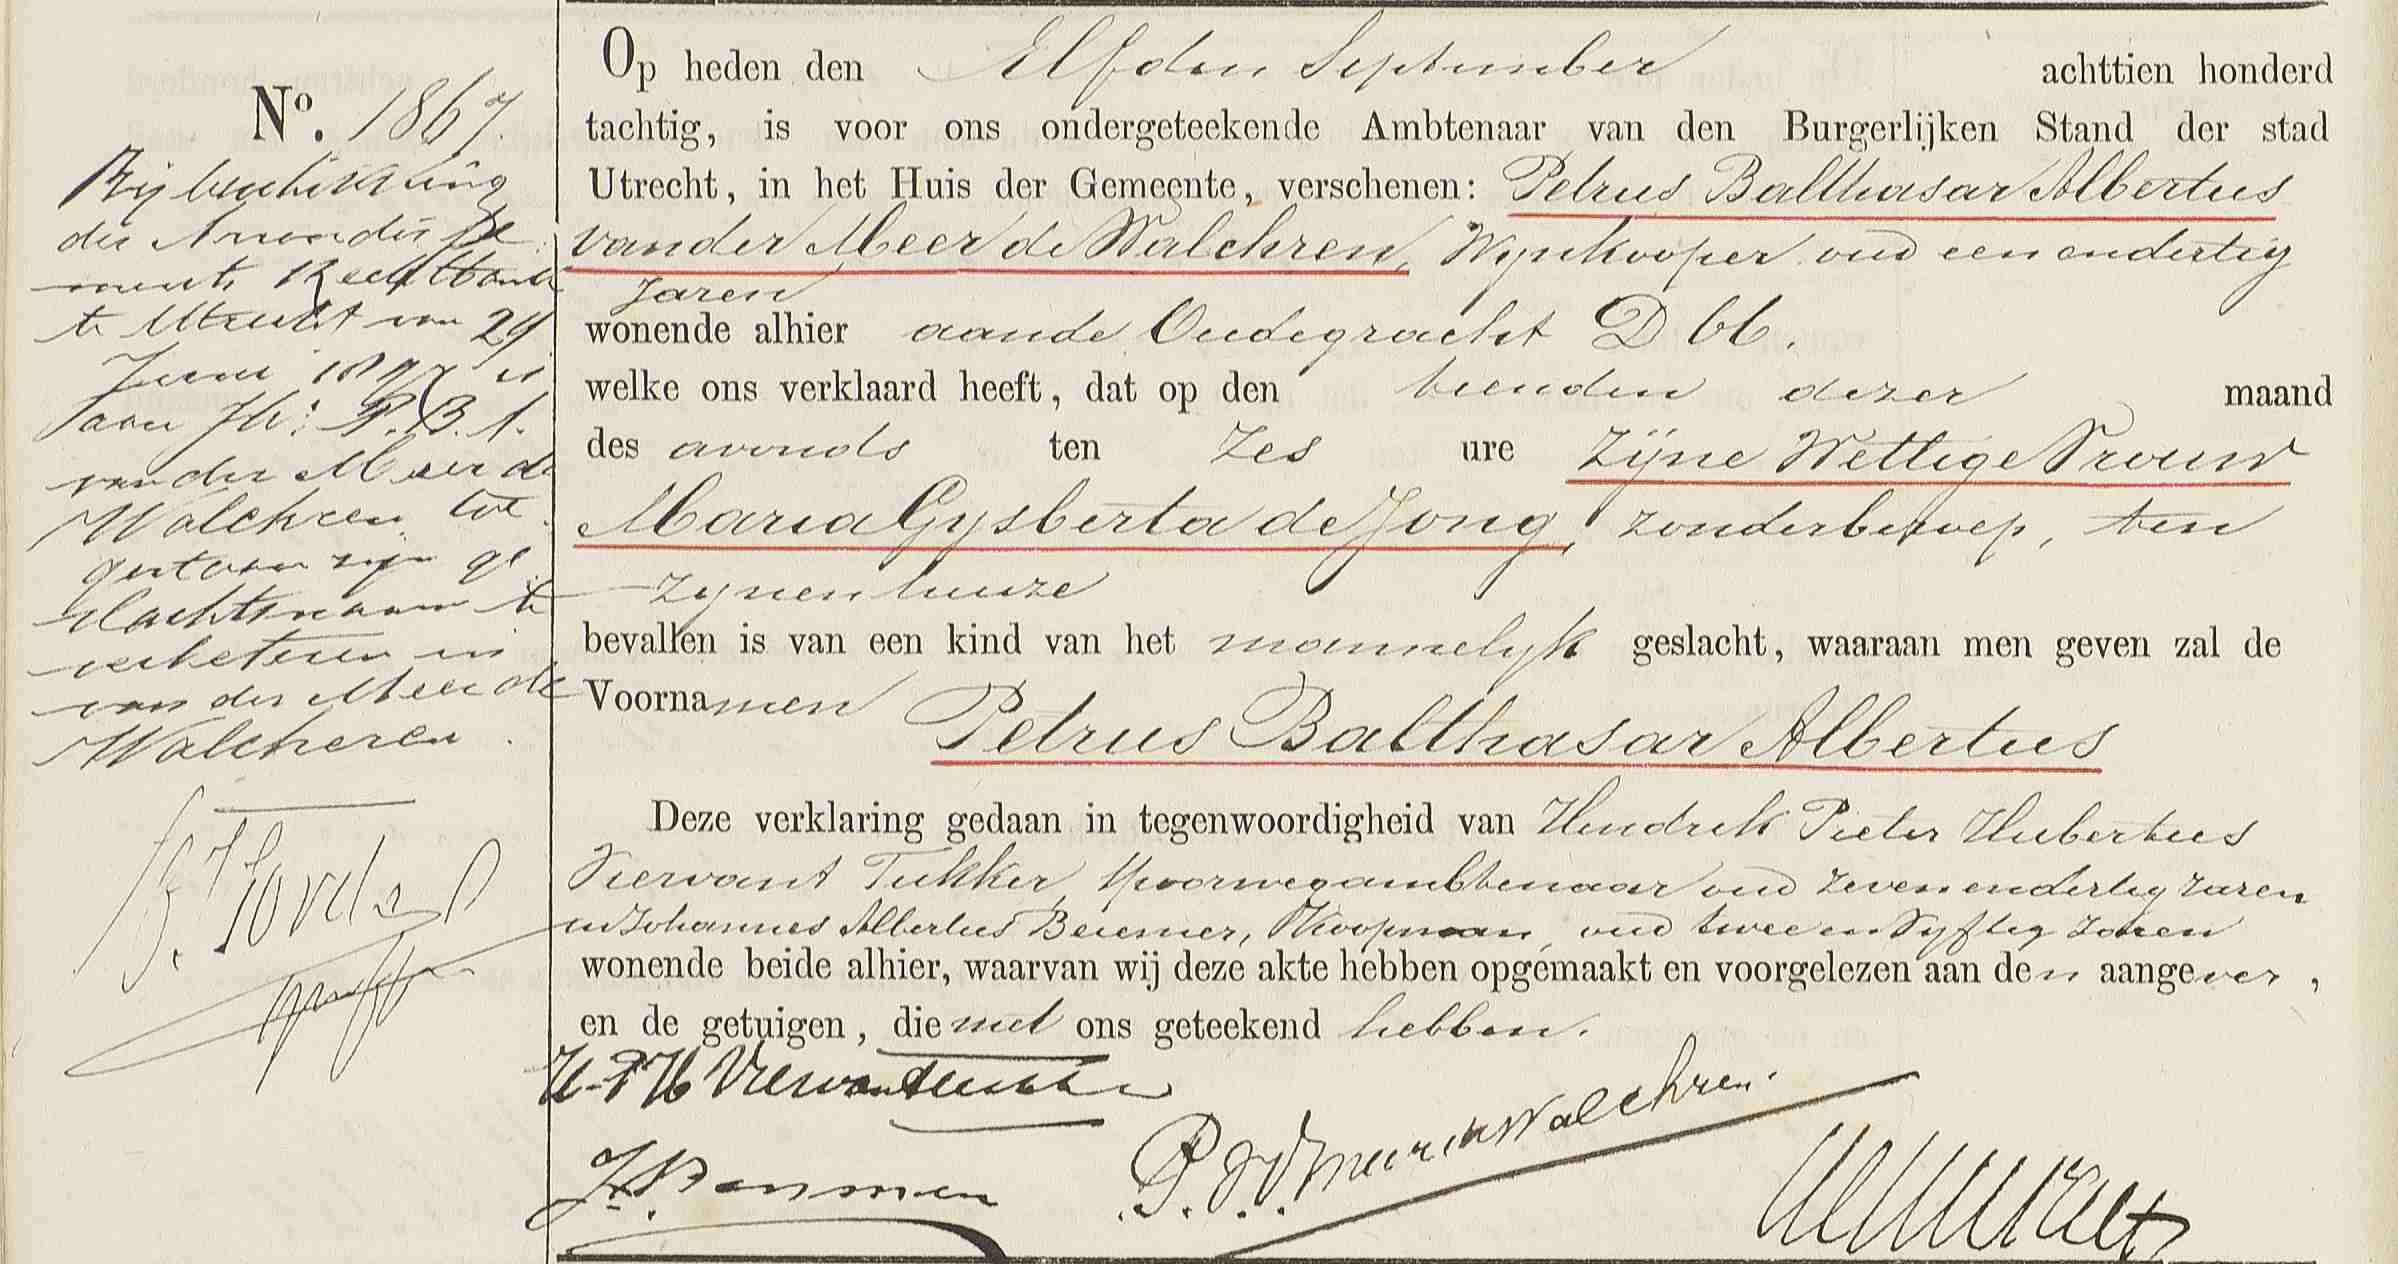 Nº. 1867.
Bij beschikking
der Arrondisse
ments Rechtbank
te Utrecht van 29
Juni 1897 is
aan Jhr. P. B. A.
van der Meer de
Walchren toe
gestaan zijn ge
slachtsnaam te
verbeteren in
van der Meer de
Walcheren.
Op heden den Elfden September achttien honderd
tachtig, is voor ons ondergeteekende Ambtenaar van den Burgerlijken Stand der stad
Utrecht, in het Huis der Gemeente, verschenen: Petrus Balthasar Albertus
van der Meer de Walchren, Wijnkooper oud een en dertig
Jaren
wonende alhier aan de Oudegracht D 66.
welke ons verklaard heeft, dat op den tienden dezer maand
des avonds ten Zes ure Zijne Wettige Vrouw
Maria Gysberta de Jong, zonder beroep, ten
zynen huize
bevallen is van een kind van het mannelyk geslacht, waaraan men geven zal de
Voornamen Petrus Balthasar Albertus
Deze verklaring gedaan in tegenwoordigheid van Hendrik Pieter Hubertus
Viervant Tukker, Spoorwegambtenaar oud zeven en dertig jaren
en Johannes Albertus Beiemer, Koopman, oud twee en vyftig Jaren
wonende beide alhier, waarvan wij deze akte hebben opgemaakt en voorgelezen aan den aangever,
en de getuigen, die met ons geteekend hebben.
H. P. H. Viervant Tukker
P. v. d. Meer de Walchren.